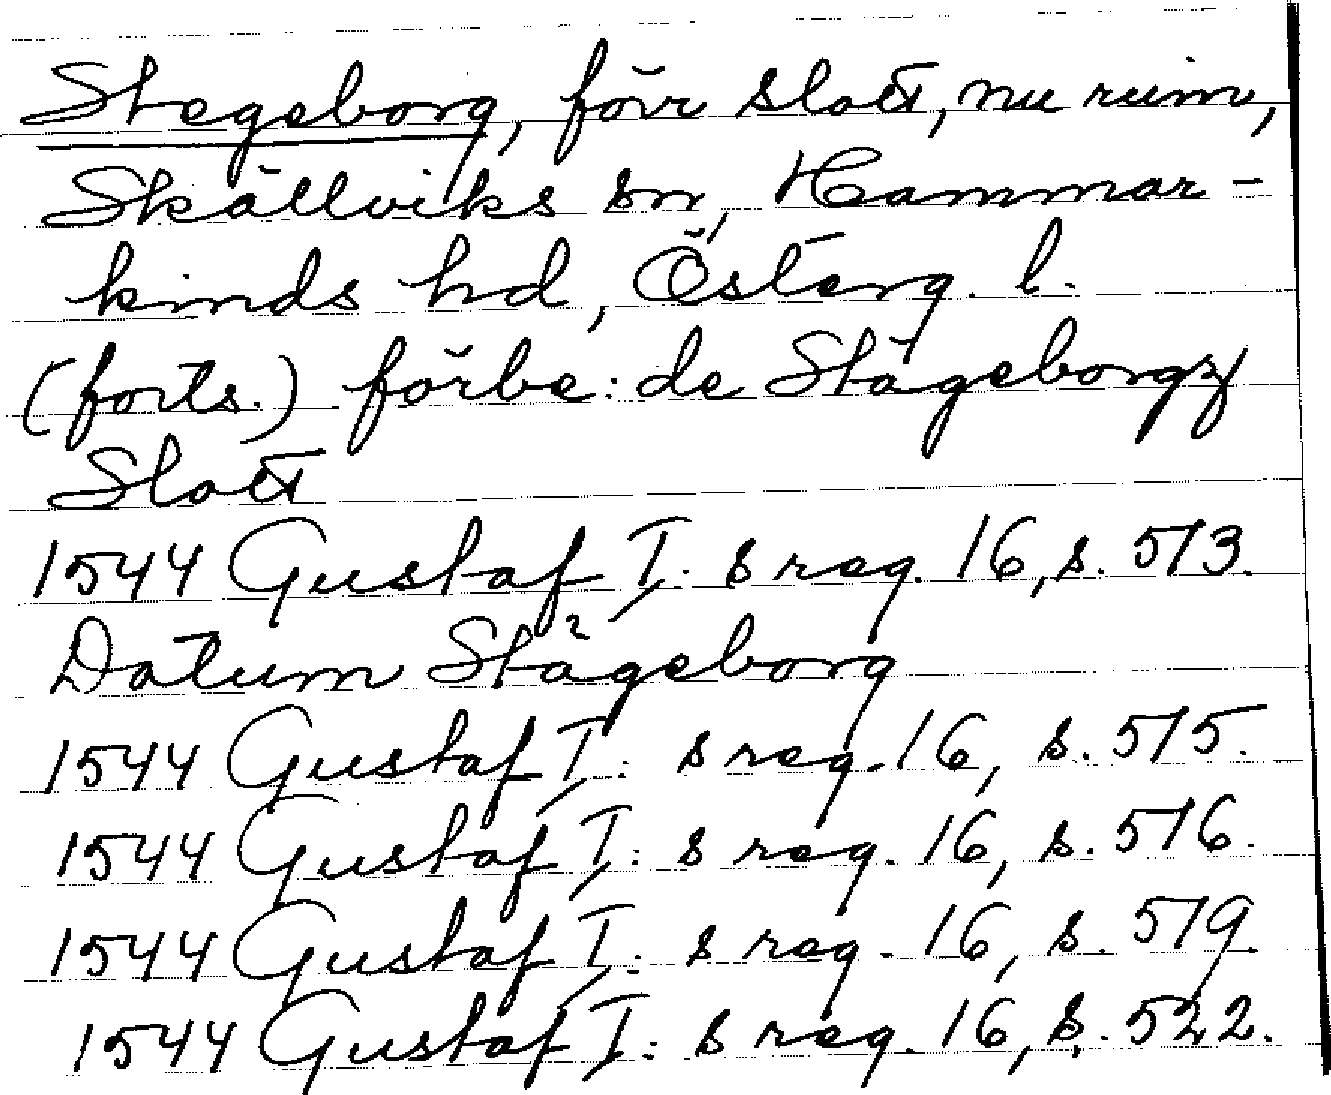 Stegeborg, förr slott, nu ruin,
Skällviks sn, Hammar-
kinds hd, Österg. l.
(forts.) förbe: de Stägeborgz
Slott
1544 Gustaf I: s reg. 16, s. 513.
Datum Stägeborg
1544 Gustaf I: s reg. 16, s. 515.
1544 Gustaf I: s reg. 16, s. 516.
1544 Gustaf I: s reg. 16, s. 519.
1544 Gustaf I: s reg. 16, s. 522.